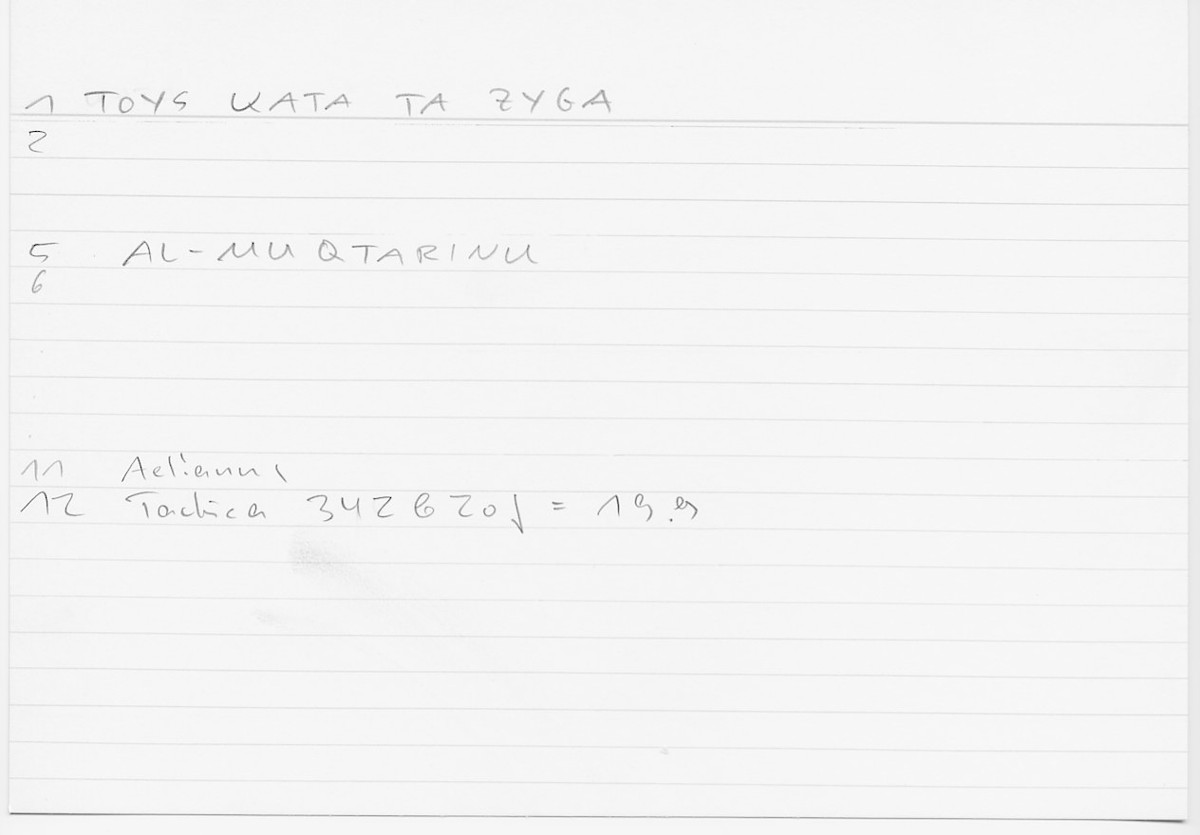 1 TOYS KATA TA ZYGA
2
5 AL-MUQTARINU
6
11 Aelianus
12 Tactica 342 b 20f = 19.9